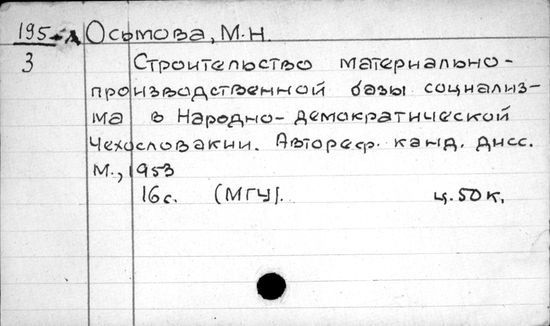 195-л Осьмова, М.Н.
3 Строительство материально-
производственной базы социализ-
ма в Народно-демократической
Чехословакии. Автореф. канд. дисс.
М., 1953
16с. (МГУ). ц. 50к.